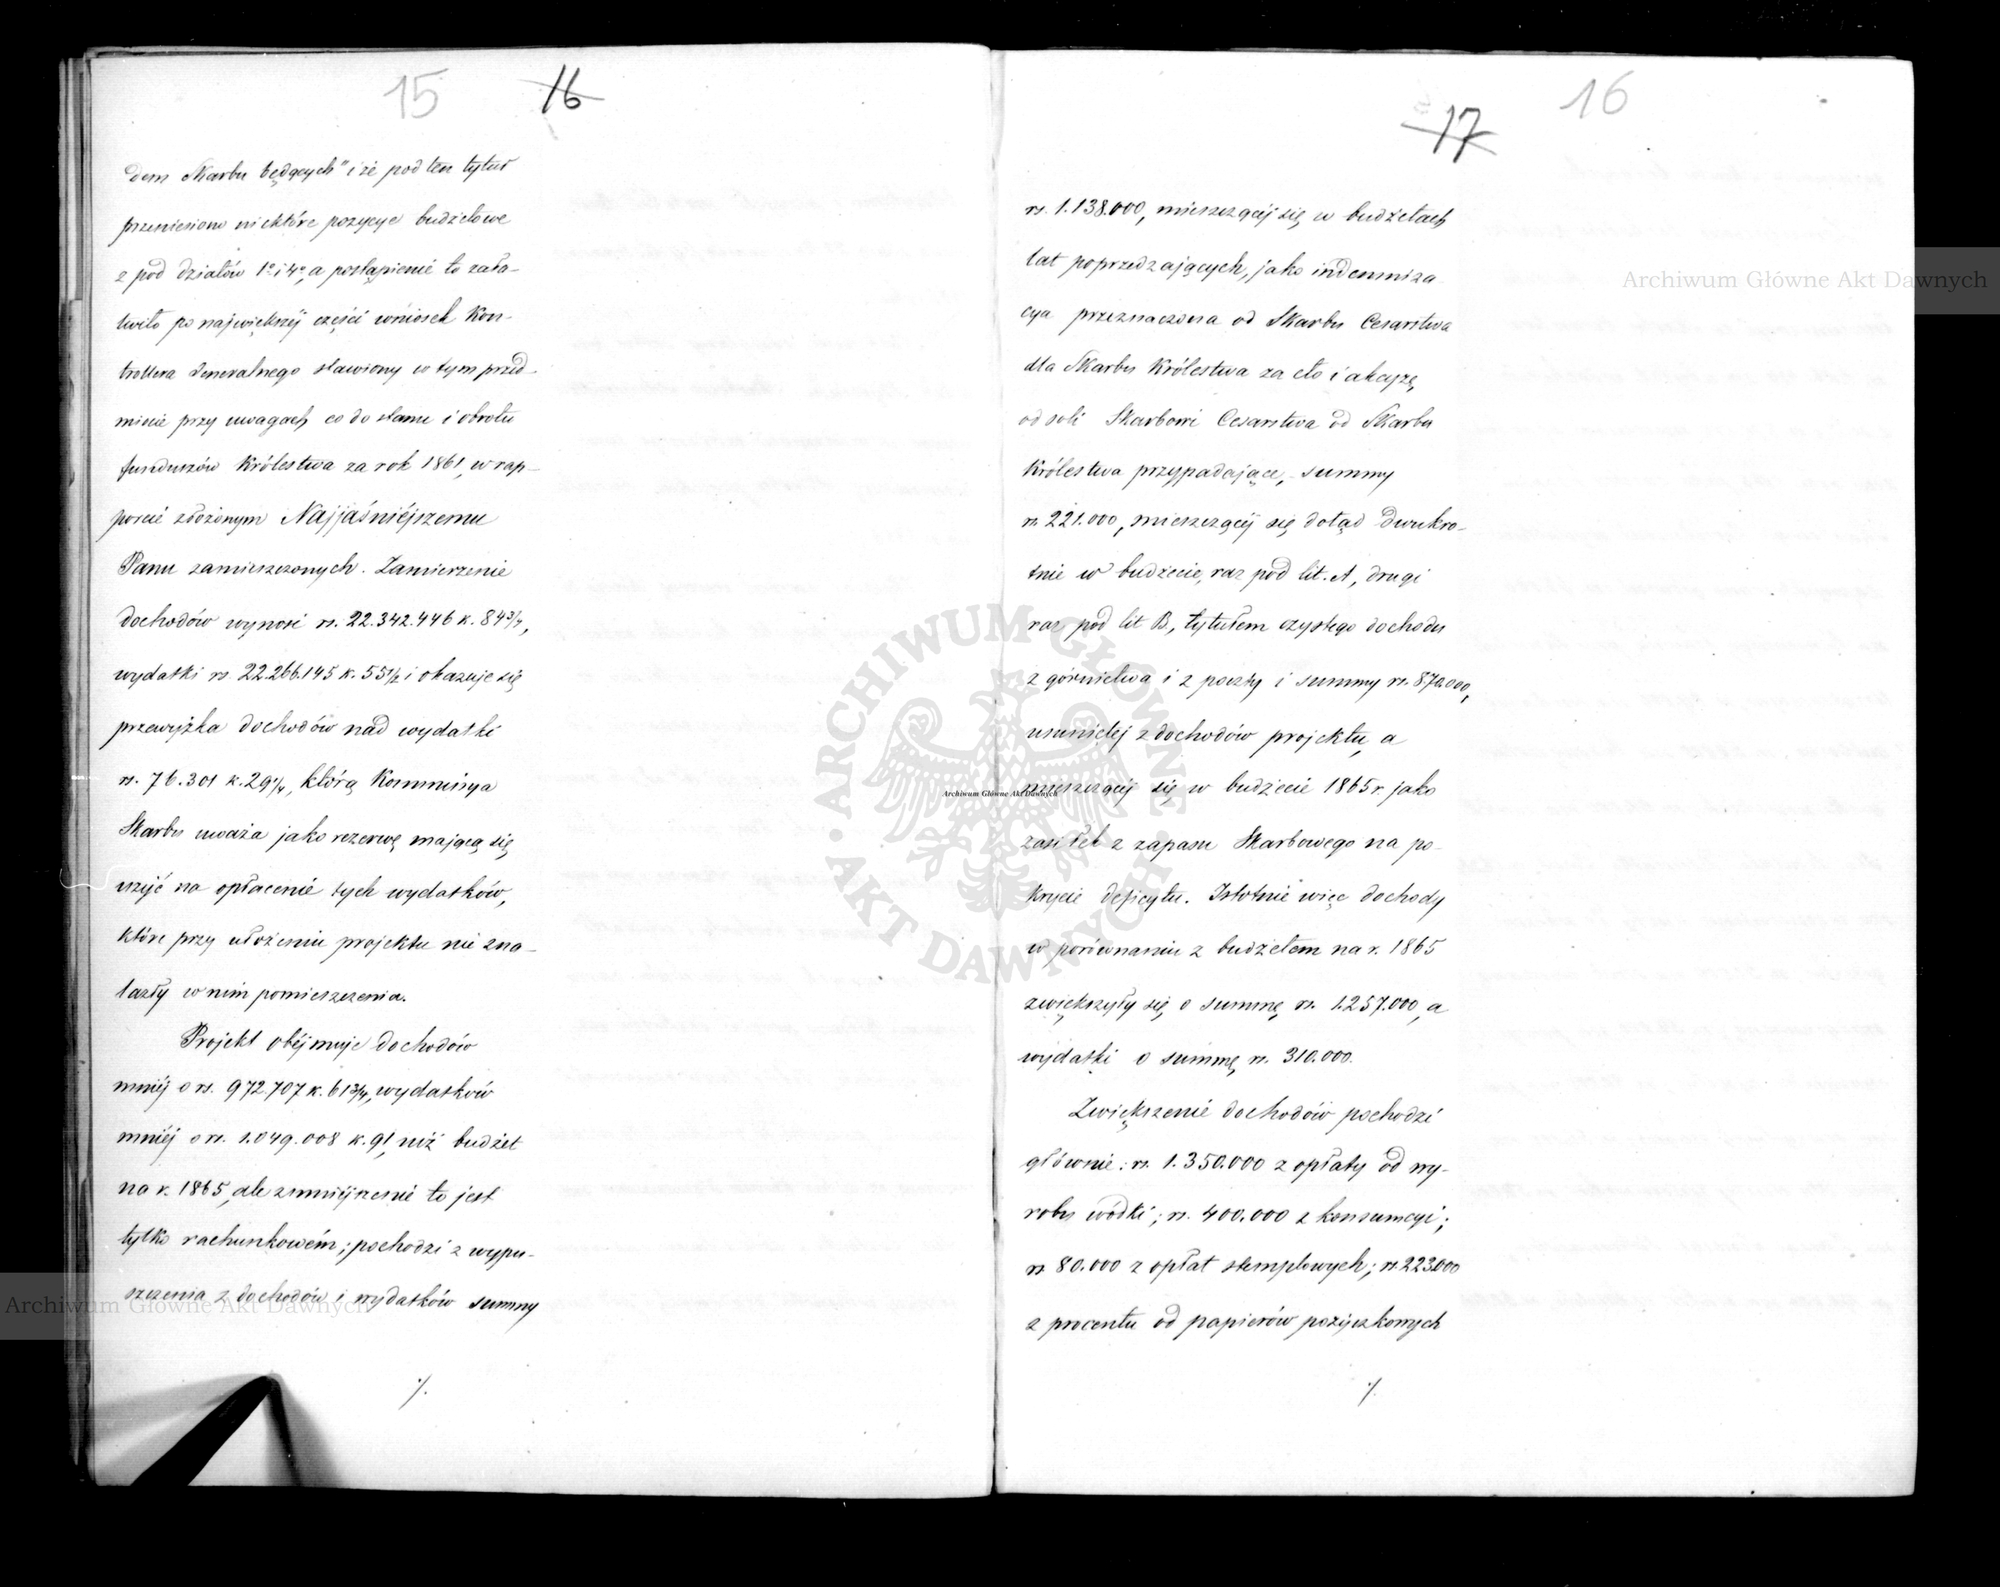 15 16
dem Skarbu będących" i że pod ten tytuł
przeniesiono niektóre pozycye budżetowe
z pod działów 1º i 4º, a postąpienie to zała-
twiło po największéj części wniosek Kon-
trollera Jeneralnego stawiony w tym przed-
miocie przy uwagach co do stanu i obrotu
funduszów Królestwa za rok 1861, w rap-
porcie złożonym Najjaśniéjszemu
Panu zamieszczonych. Zamierzenie
dochodów wynosi rs. 22.342.446 k. 84 3/4,
wydatki rs. 22.266.145 k. 55 1/2 i okazuje się
przewyżka dochodów nad wydatki
rs. 76.301 k. 29 1/4, którą Kommissya
Skarbu uważa jako rezerwę mającą się
użyć na opłacenie tych wydatków,
które przy ułożeniu projektu nie zna-
lazły w nim pomieszczenia.
Projekt obéjmuje dochodów
mniéj o rs. 972.707 k. 61 3/4, wydatków
mniéj o rs. 1.049.008 k. 91, niż budżet
na r. 1865, ale zmniéjszenie to jest
tylko rachunkowém; pochodzi z wypu-
szczenia z dochodów i wydatków summy
./.
17 16
rs. 1.138.000, mieszczącéj się w budżetach
lat poprzedzających, jako indemniza
cya przeznaczona od Skarbu Cesarstwa
dla Skarbu Królestwa za cło i akcyzę
od soli Skarbowi Cesarstwa od Skarbu
Królestwa przypadające, summy
rs. 221.000, mieszczącéj się dotąd dwukro-
tnie w budżecie, raz pod lit. A, drugi
raz pod lit B, tytułem czystego dochodu
z górnictwa i z poczty i summy rs. 870.000,
usuniętej z dochodów projektu, a
mieszczącéj się w budżecie 1865 r. jako
zasiłek z zapasu Skarbowego na po-
krycie deficytu. Istotnie więc dochody
w porównaniu z budżetem na r. 1865
zwiększyły się o summę rs. 1.257.000, a
wydatki o summę rs. 310.000.
Zwiększenie dochodów pochodzi
głównie: rs. 1.350.000 z opłaty od wy-
robu wódki; rs. 400.000 z konsumcyi;
rs 80.000 z opłat stemplowych; rs. 223.000
z procentu od papierów pożyczkowych
./.
Archiwum Główne Akt Dawnych
Archiwum Główne Akt Dawnych
Archiwum Główne Akt Dawnych
ARCHIWUM GŁÓWNE · AKT DAWNYCH ·